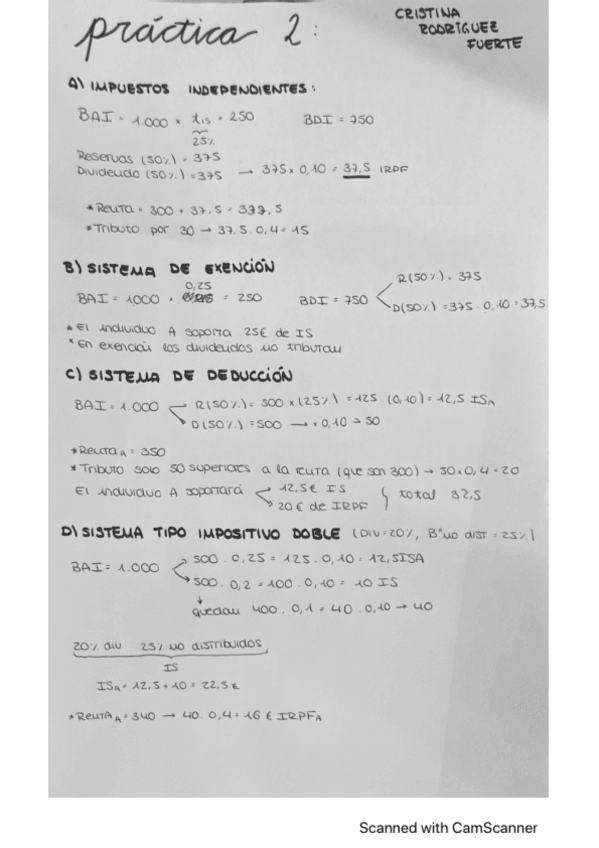 práctica 2:
CRISTINA
RODRÍGUEZ
FUERTE
A) IMPUESTOS INDEPENDIENTES:
BAI = 1.000 × tis = 250 BDI = 750
25%
Reservas (50%) = 375
Dividendo (50%) = 375 → 375 × 0,10 = 37,5 IRPF
* Renta = 300 + 37,5 = 337,5
* Tributo por 30 → 37,5 · 0,4 = 15
B) SISTEMA DE EXENCIÓN
0,25
BAI = 1000 · = 250 BDI = 750
R(50%) = 375
D(50%) = 375 · 0,10 = 37,5
* El individuo A soporta 25€ de IS
* En exención los dividendos no tributan
C) SISTEMA DE DEDUCCIÓN
BAI = 1.000
R(50%) = 500 × (25%) = 125 · (0,10) = 12,5 ISA
D(50%) = 500 → × 0,10 = 50
* Renta A = 350
* Tributo solo 50 superiores a la renta (que son 300) → 50 × 0,4 = 20
El individuo A soportará
12,5€ IS
20€ de IRPF
total 32,5
D) SISTEMA TIPO IMPOSITIVO DOBLE (DIV = 20%, Bº no dist = 25%)
BAI = 1.000
500 · 0,25 = 125 · 0,10 = 12,5 ISA
500 · 0,2 = 100 · 0,10 = 10 IS
quedan 400 · 0,1 = 40 · 0,10 → 40
20% div 25% no distribuidos
IS
ISA = 12,5 + 10 = 22,5€
* Renta A = 340 → 40 · 0,4 = 16 € IRPFA
Scanned with CamScanner